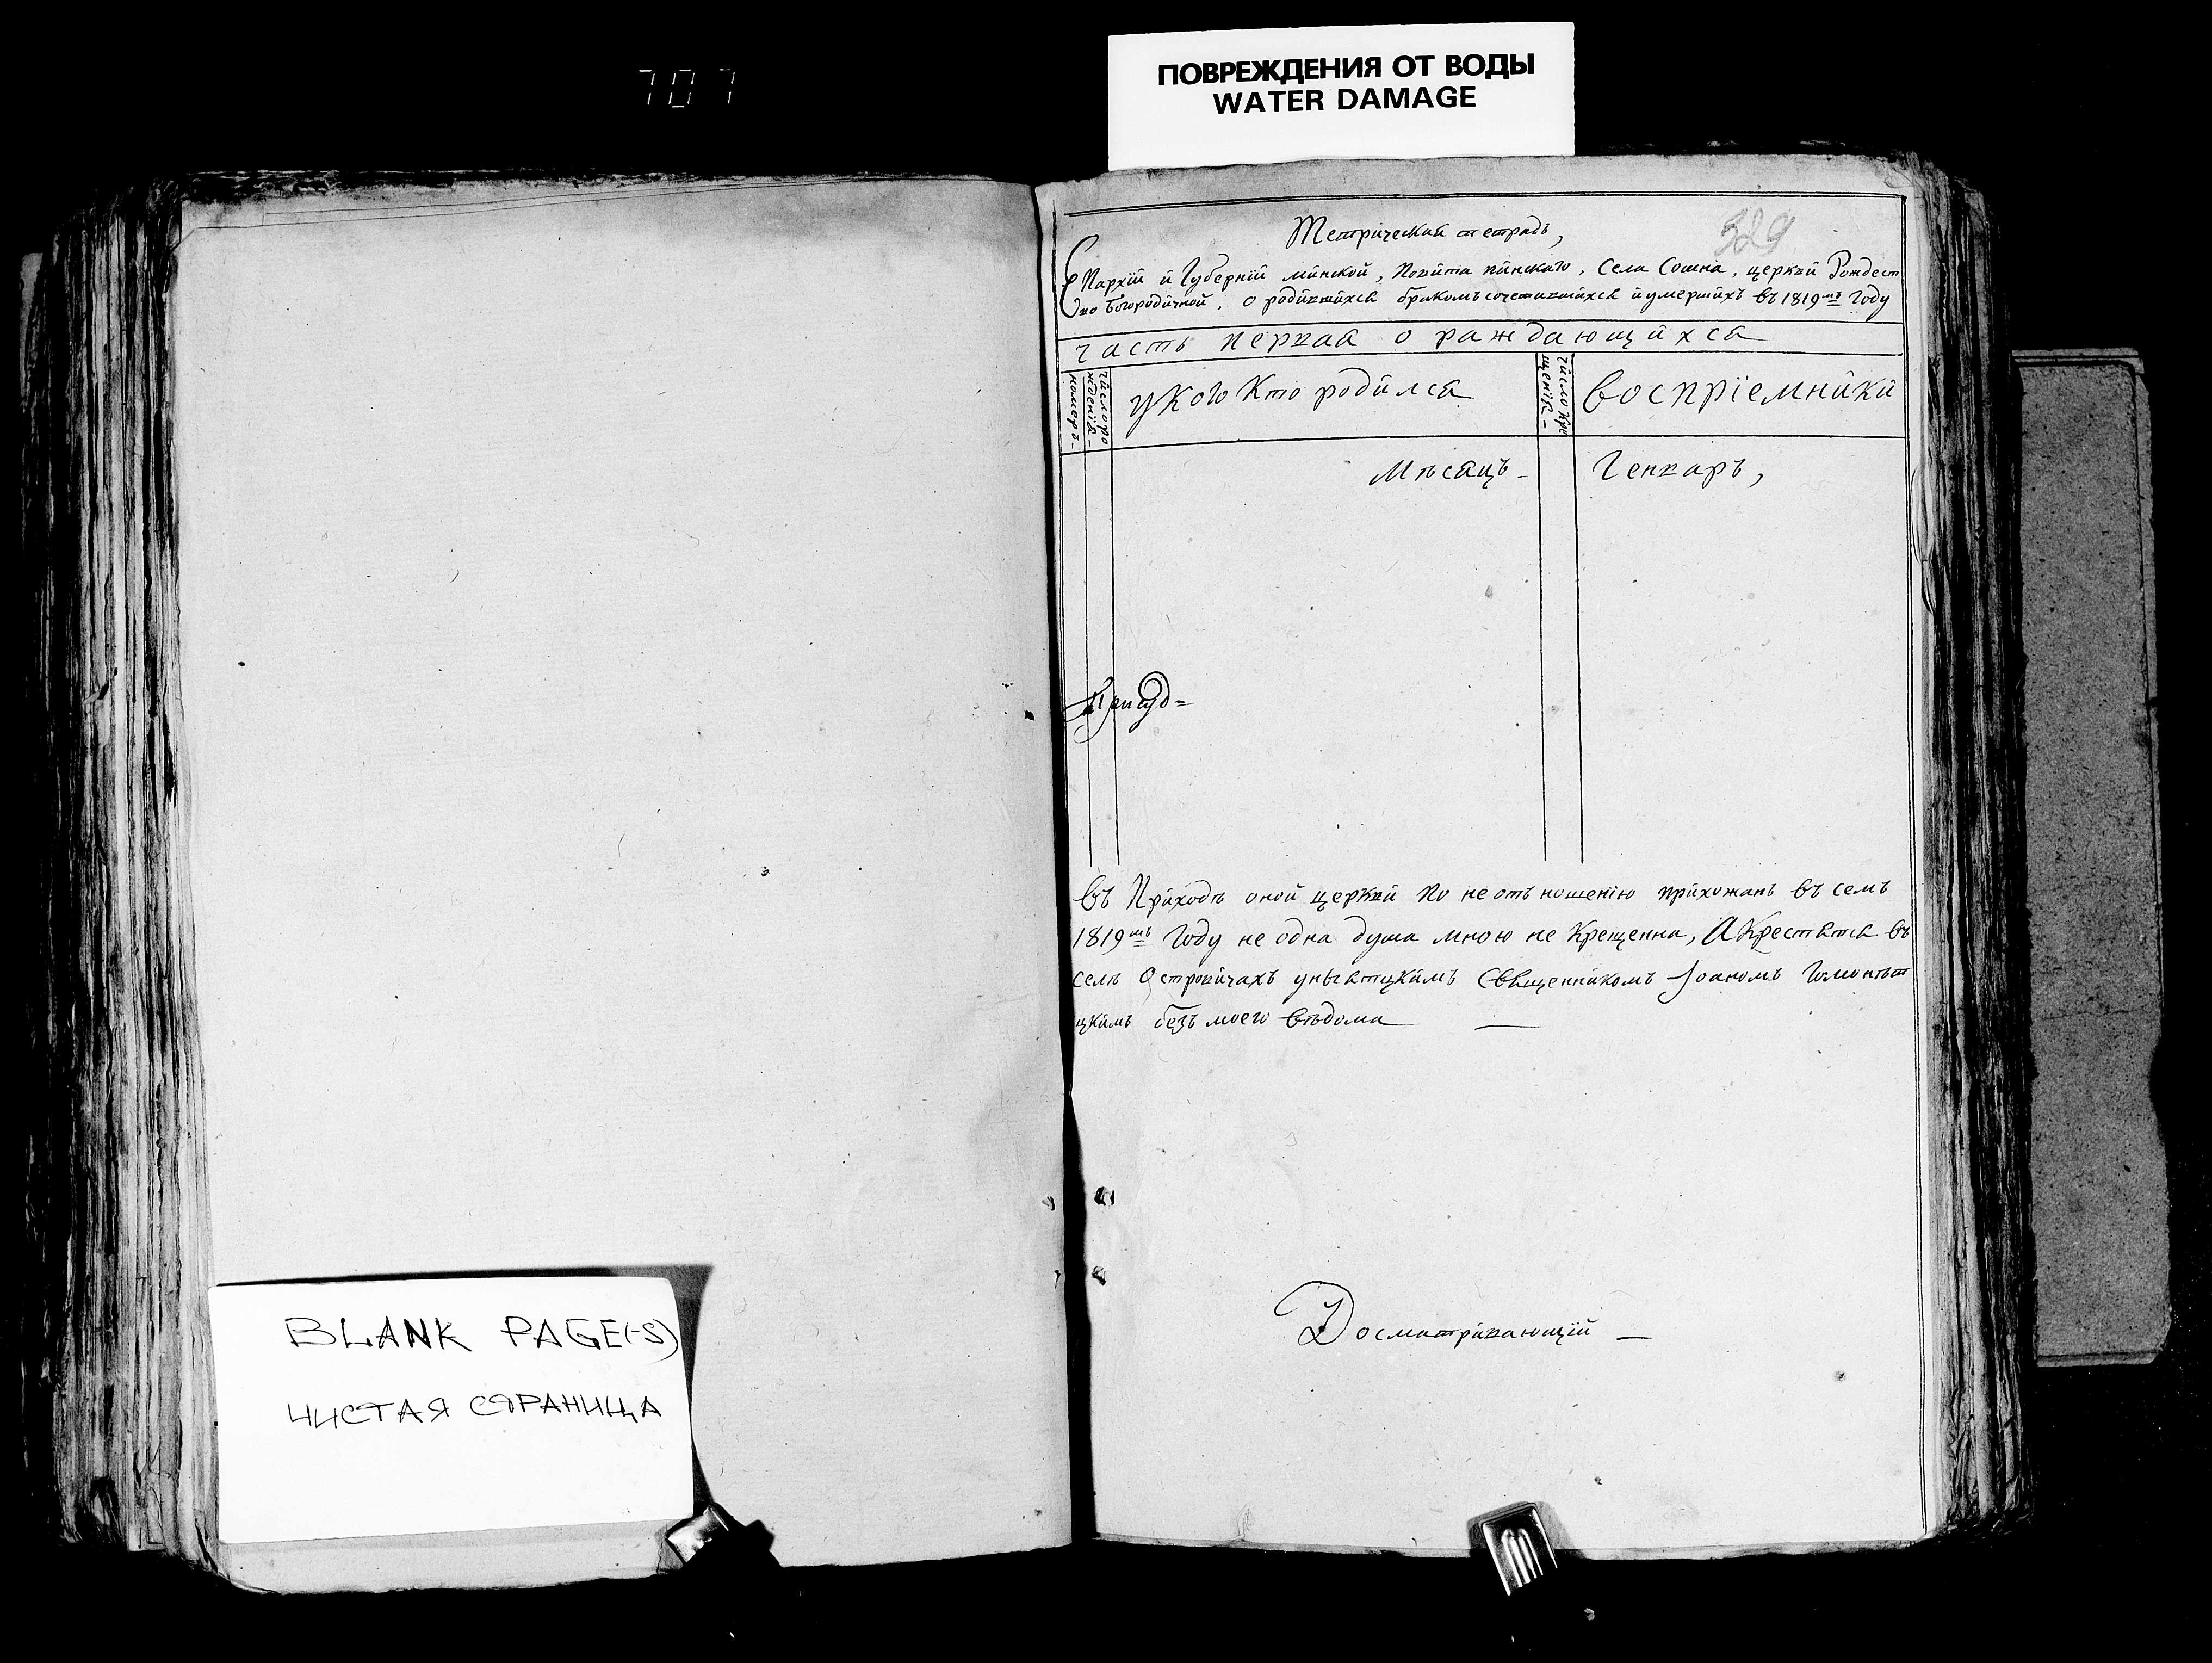 707
ПОВРЕЖДЕНИЯ ОТ ВОДЫ
WATER DAMAGE
329
Метрическая тетрадь,
Епархїи и Губернїи минской, Повита пинскаго, Села Сошна, церкви Рождест
вно Богородичной, о родившихся бракомъ сочетавшихся и умершихъ въ 1819мъ Году
часть первая о раждающихся
номеръ-
число ро
жденїя-
у Кого Кто родился
число кре
щенїя-
воспрїемники
Мѣсяцъ- Генварь,
въ Приходѣ оной церкви по неотъношенїю прихожанъ въ семъ
1819мъ Году не одна душа мною не Крещенна, А Крестятся въ
селѣ Островичахъ уныятцкимъ Священникомъ Іоаномъ
цкимъ безъ моего вѣдома —
Досматривающїй —
BLANK PAGE(-S)
ЧИСТАЯ СТРАНИЦА